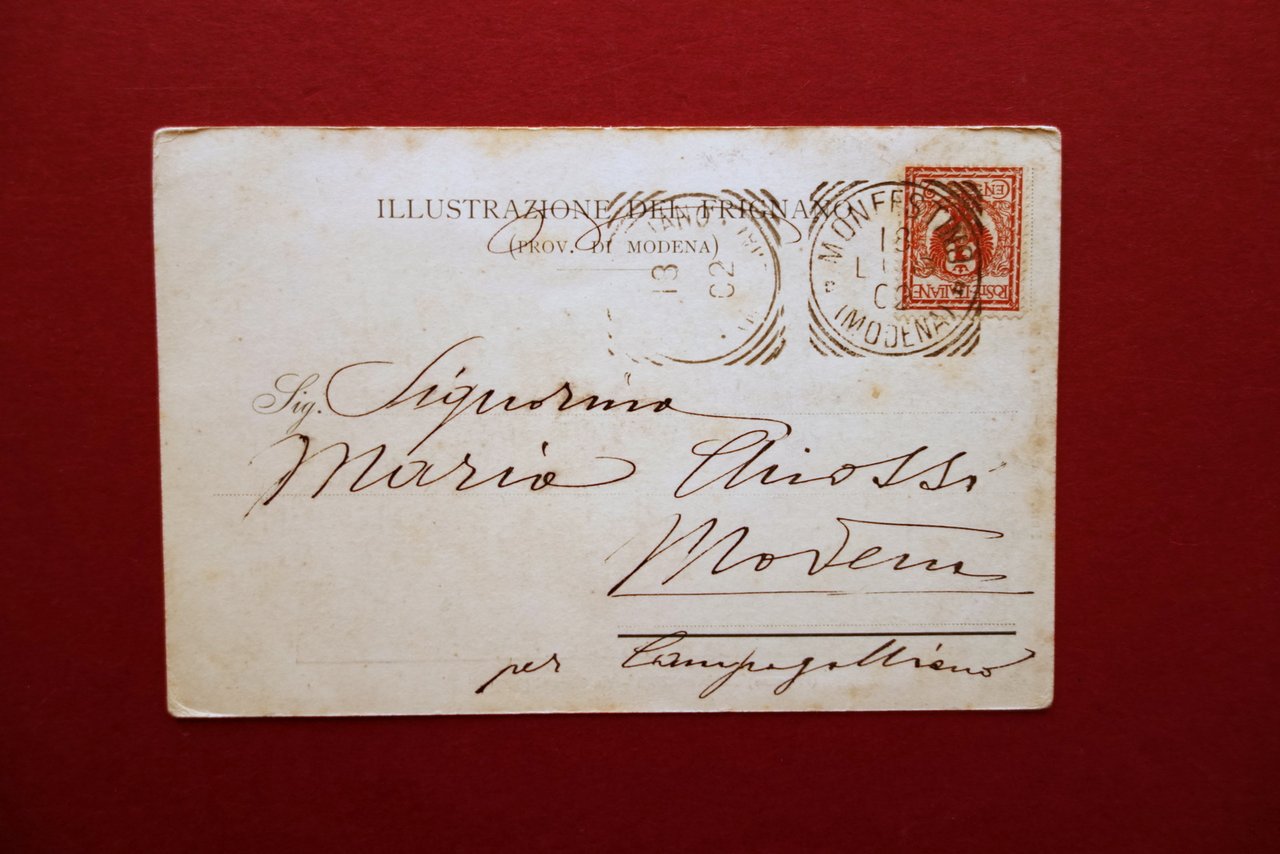 ILLUSTRAZIONE DEL FRIGNANO
(PROV. DI MODENA)
IANO
13
02
MONFESTINO
LU
02
(MODENA)
POSTE ITALIANE
Sig. Signorina
Maria Chiossi
Modena
per Campogalliano